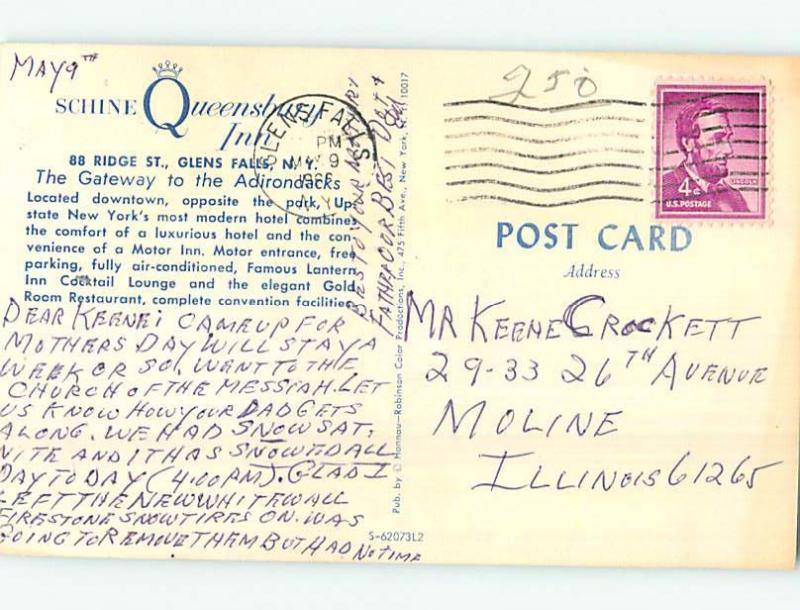 MAY 9TH
SCHINE Queensbury
Inn
88 RIDGE ST., GLENS FALLS, N. Y.
The Gateway to the Adirondacks
Located downtown, opposite the park, Up-
state New York's most modern hotel combines
the comfort of a luxurious hotel and the con-
venience of a Motor Inn. Motor entrance, free
parking, fully air-conditioned, Famous Lantern
Inn Cocktail Lounge and the elegant Gold
Room Restaurant, complete convention facilities.
DEAR KEENE: CAME UP FOR
MOTHERS DAY WILL STAY A
WEEK OR SO. WENT TO THE
CHURCH OF THE MESSIAH. LET
US KNOW HOW YOUR DAD GETS
ALONG. WE HAD SNOW SAT.
NITE AND IT HAS SNOWED ALL
DAY TODAY (4:00 PM). GLAD I
LEFT THE NEW WHITEWALL
FIRESTONE SNOW TIRES ON. WAS
GOING TO REMOVE THEM BUT HAD NO TIME
BEST TO YOUR
FATHER OUR BEST
GLENS FALLS
PM
MAY 9
1966
N.Y.
Pub. by © Hannau-Robinson Color Productions, Inc., 475 Fifth Ave., New York, N. Y. 10017
S-62073L2
250
4¢
LINCOLN
U.S. POSTAGE
POST CARD
Address
MR KEENE CROCKETT
29-33 26TH AVENUE
MOLINE
ILLINOIS 61265